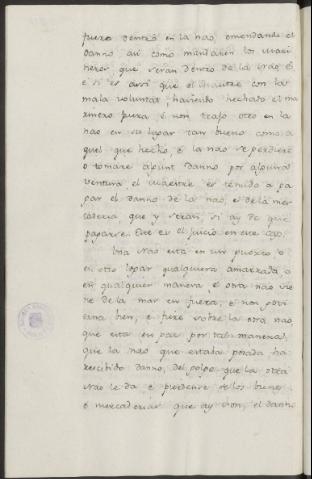 fuera dentro en la nao, emendando el
danno, asi como mandaren los maes
tres que seran dentro de la nao. E
e si es assi que el maestre con la
mala voluntat haviendo hechado el ma
rinero fuera, e non trajo otro en la
nao en su lugar tan bueno como a
quel que hecho, e la nao se perdiere
o tomare algunt danno por alguna
ventura, el maestre es tenido a pa
gar el danno de la nao, e de la mer
caderia que y seran, si ay de que
pagarse. Este es el juicio en este caso.
Una nao esta en un puerto o
en otro lugar qualquiera amarrada, o
en qualquier manera, e otra nao vie
ne de la mar en fuera, e non govi
erna bien, e fiere sobre la otra nao
que esta en paz por tal manera,
que la nao que estaba posada ha
rescibido danno, del golpe que la otra
nao le da e perdense de los bienes
o mercaderias que ay son, el danno